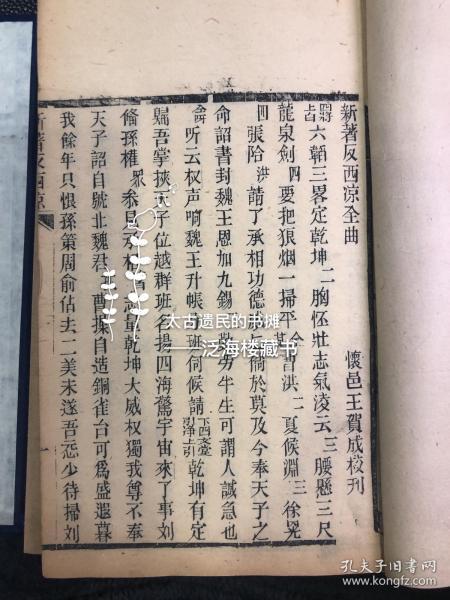 新著反西凉全曲
懷邑王賀成校刊
四將上唱六韜三畧定乾坤二胸怀壯志氣淩云三腰懸三尺
龍泉劍四要把狼烟一掃平 曹洪二夏候淵三徐晃
四張郃洪請了承相功德 倫於莫及今奉天子之
命詔書封魏王恩加九錫 勞半生可謂人誠急也
听云权声响魏王升帳 班伺候請 乾坤有定
歸吾掌挾天子位越群班名揚四海驚宇宙來了事刘
俻孫權 眾叅見 乾坤大威权獨我尊不奉
天子詔自號北魏君 曹操自造銅雀台可為盛還暮
我餘年只恨孫策周俞佔去二美未遂吾 少待掃刘
新著反西凉
太古遗民的书摊
——泛海楼藏书
孔夫子旧书网
www.kongfz.com